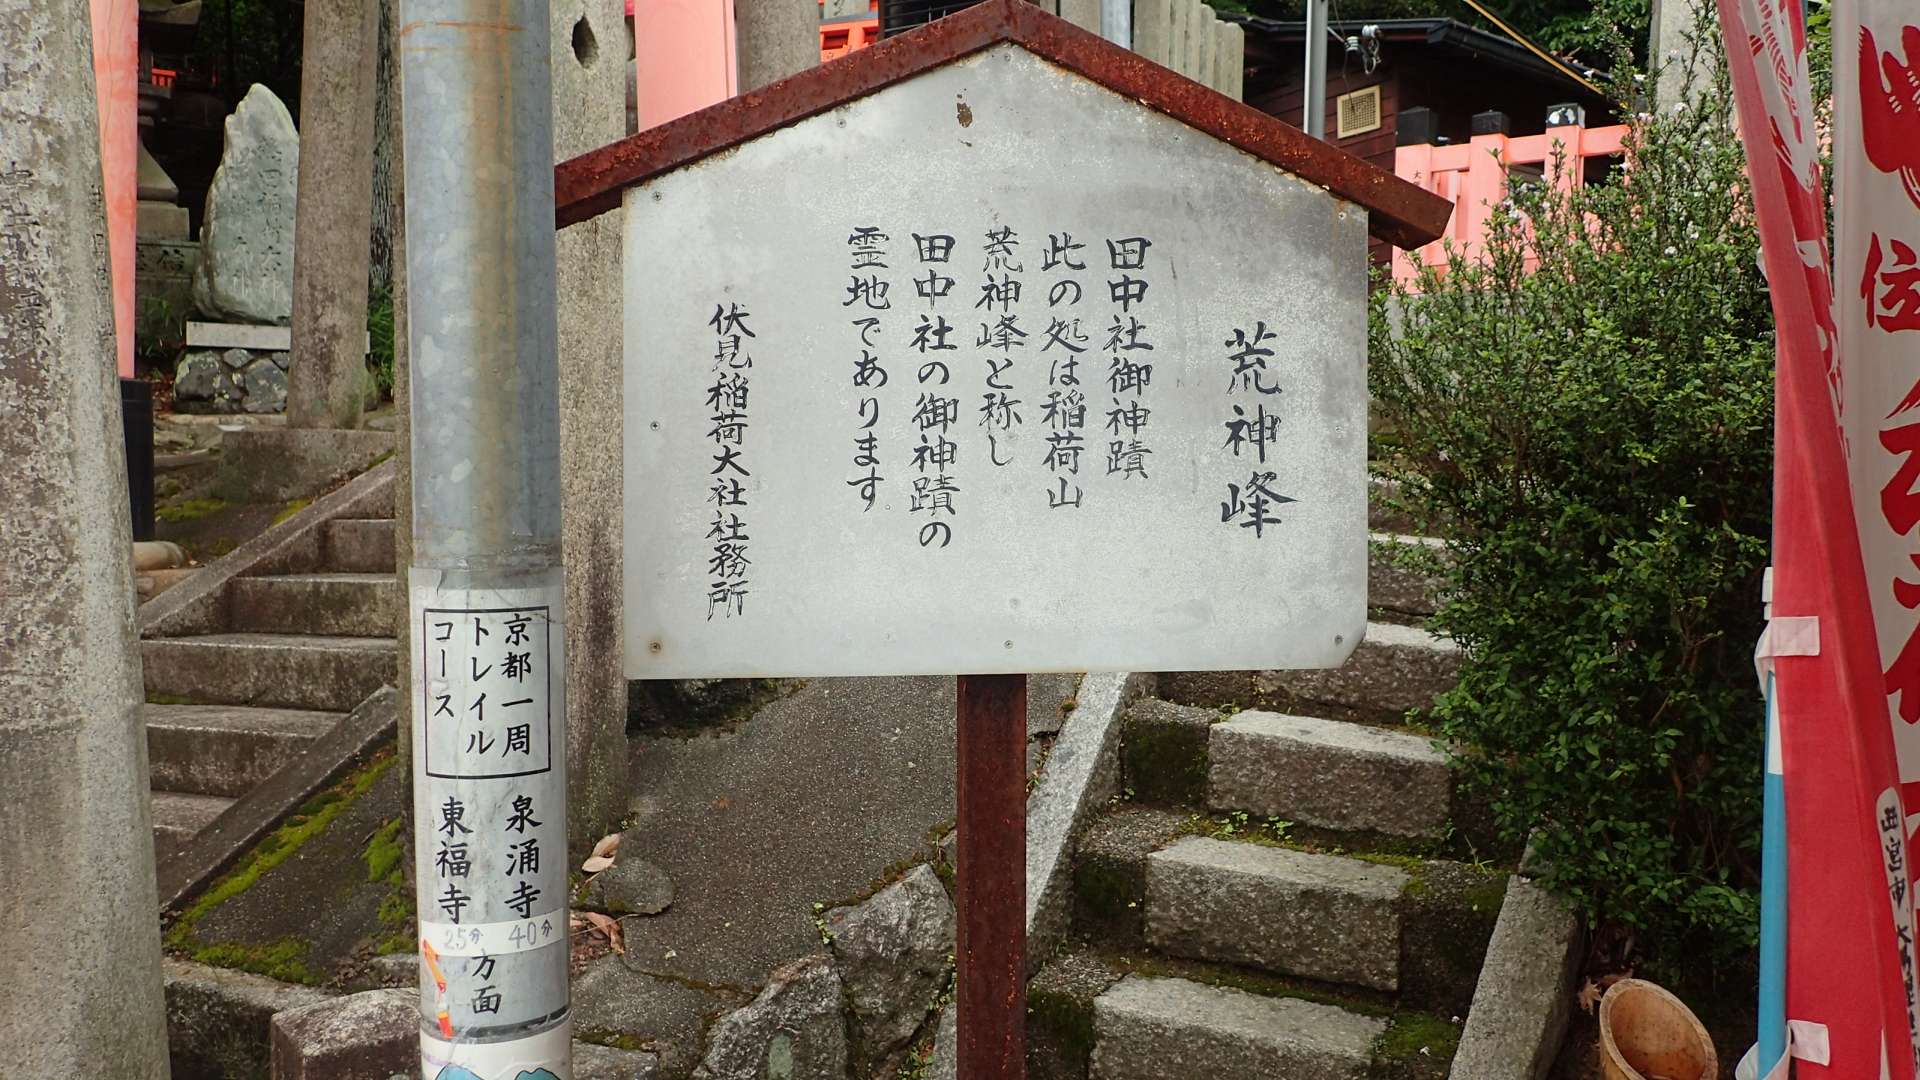 荒神峰
田中社御神蹟
此の処は稲荷山
荒神峰と称し
田中社の御神蹟の
霊地であります
伏見稲荷大社社務所
京都一周
トレイル
コース
泉涌寺
40分
東福寺
25分
方面
位
西宮神